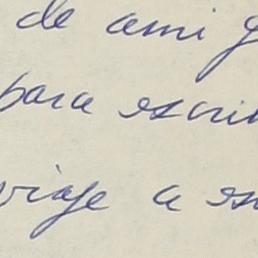 de ami g
para escrib
viaje a es